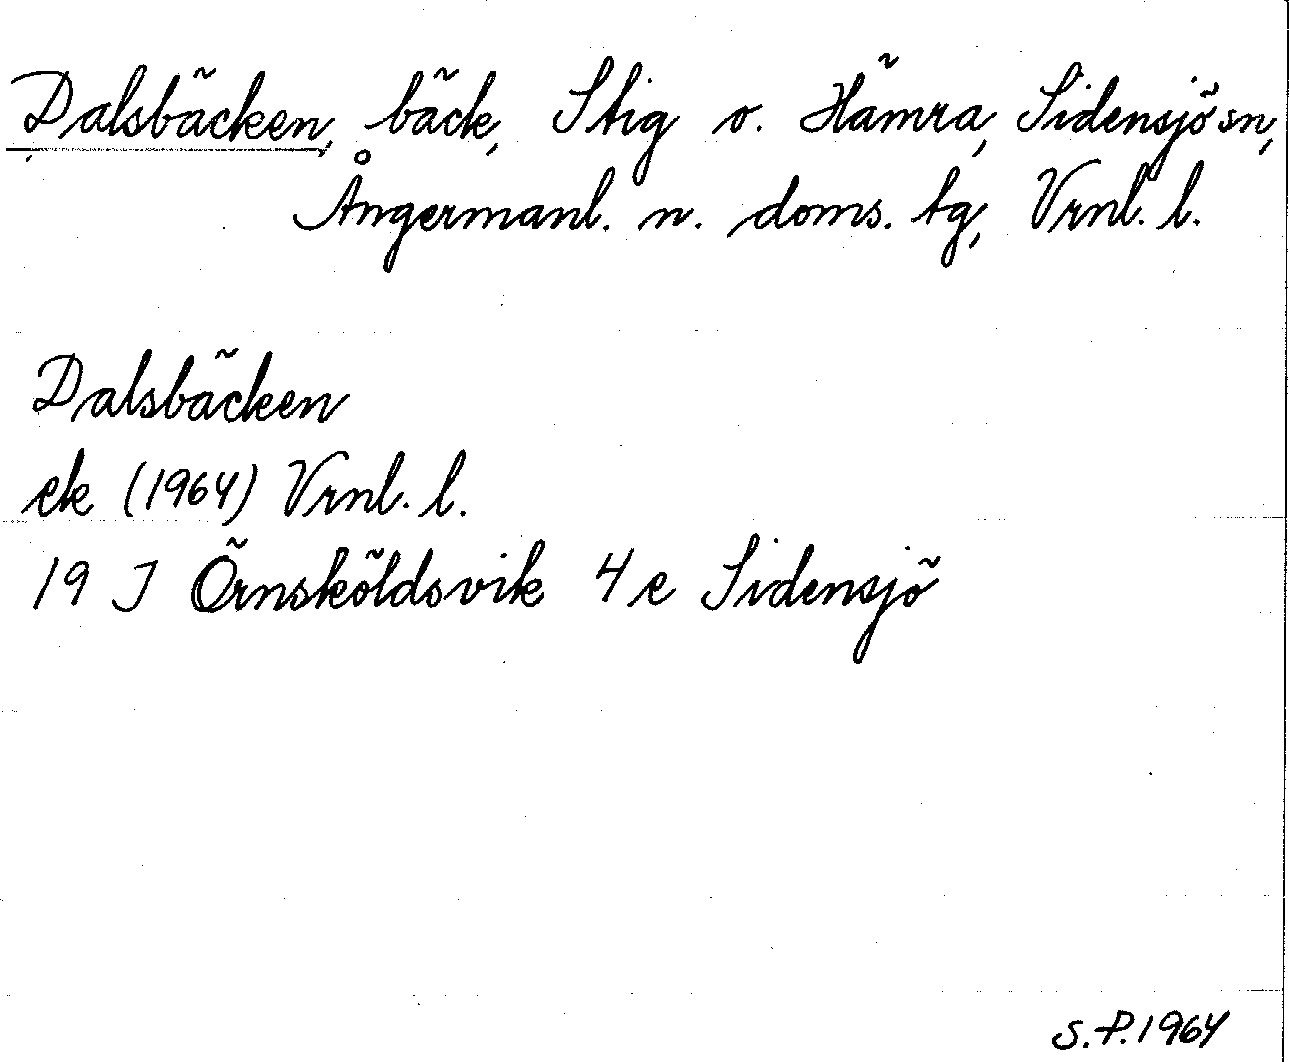 Dalsbäcken, bäck, Stig o. Hämra, Sidensjö sn,
Ångermanl. n. doms. tg, Vrnl. l.
Dalsbäcken
ek (1964) Vrnl. l.
19 J Örnsköldsvik 4 e Sidensjö
S.P. 1964